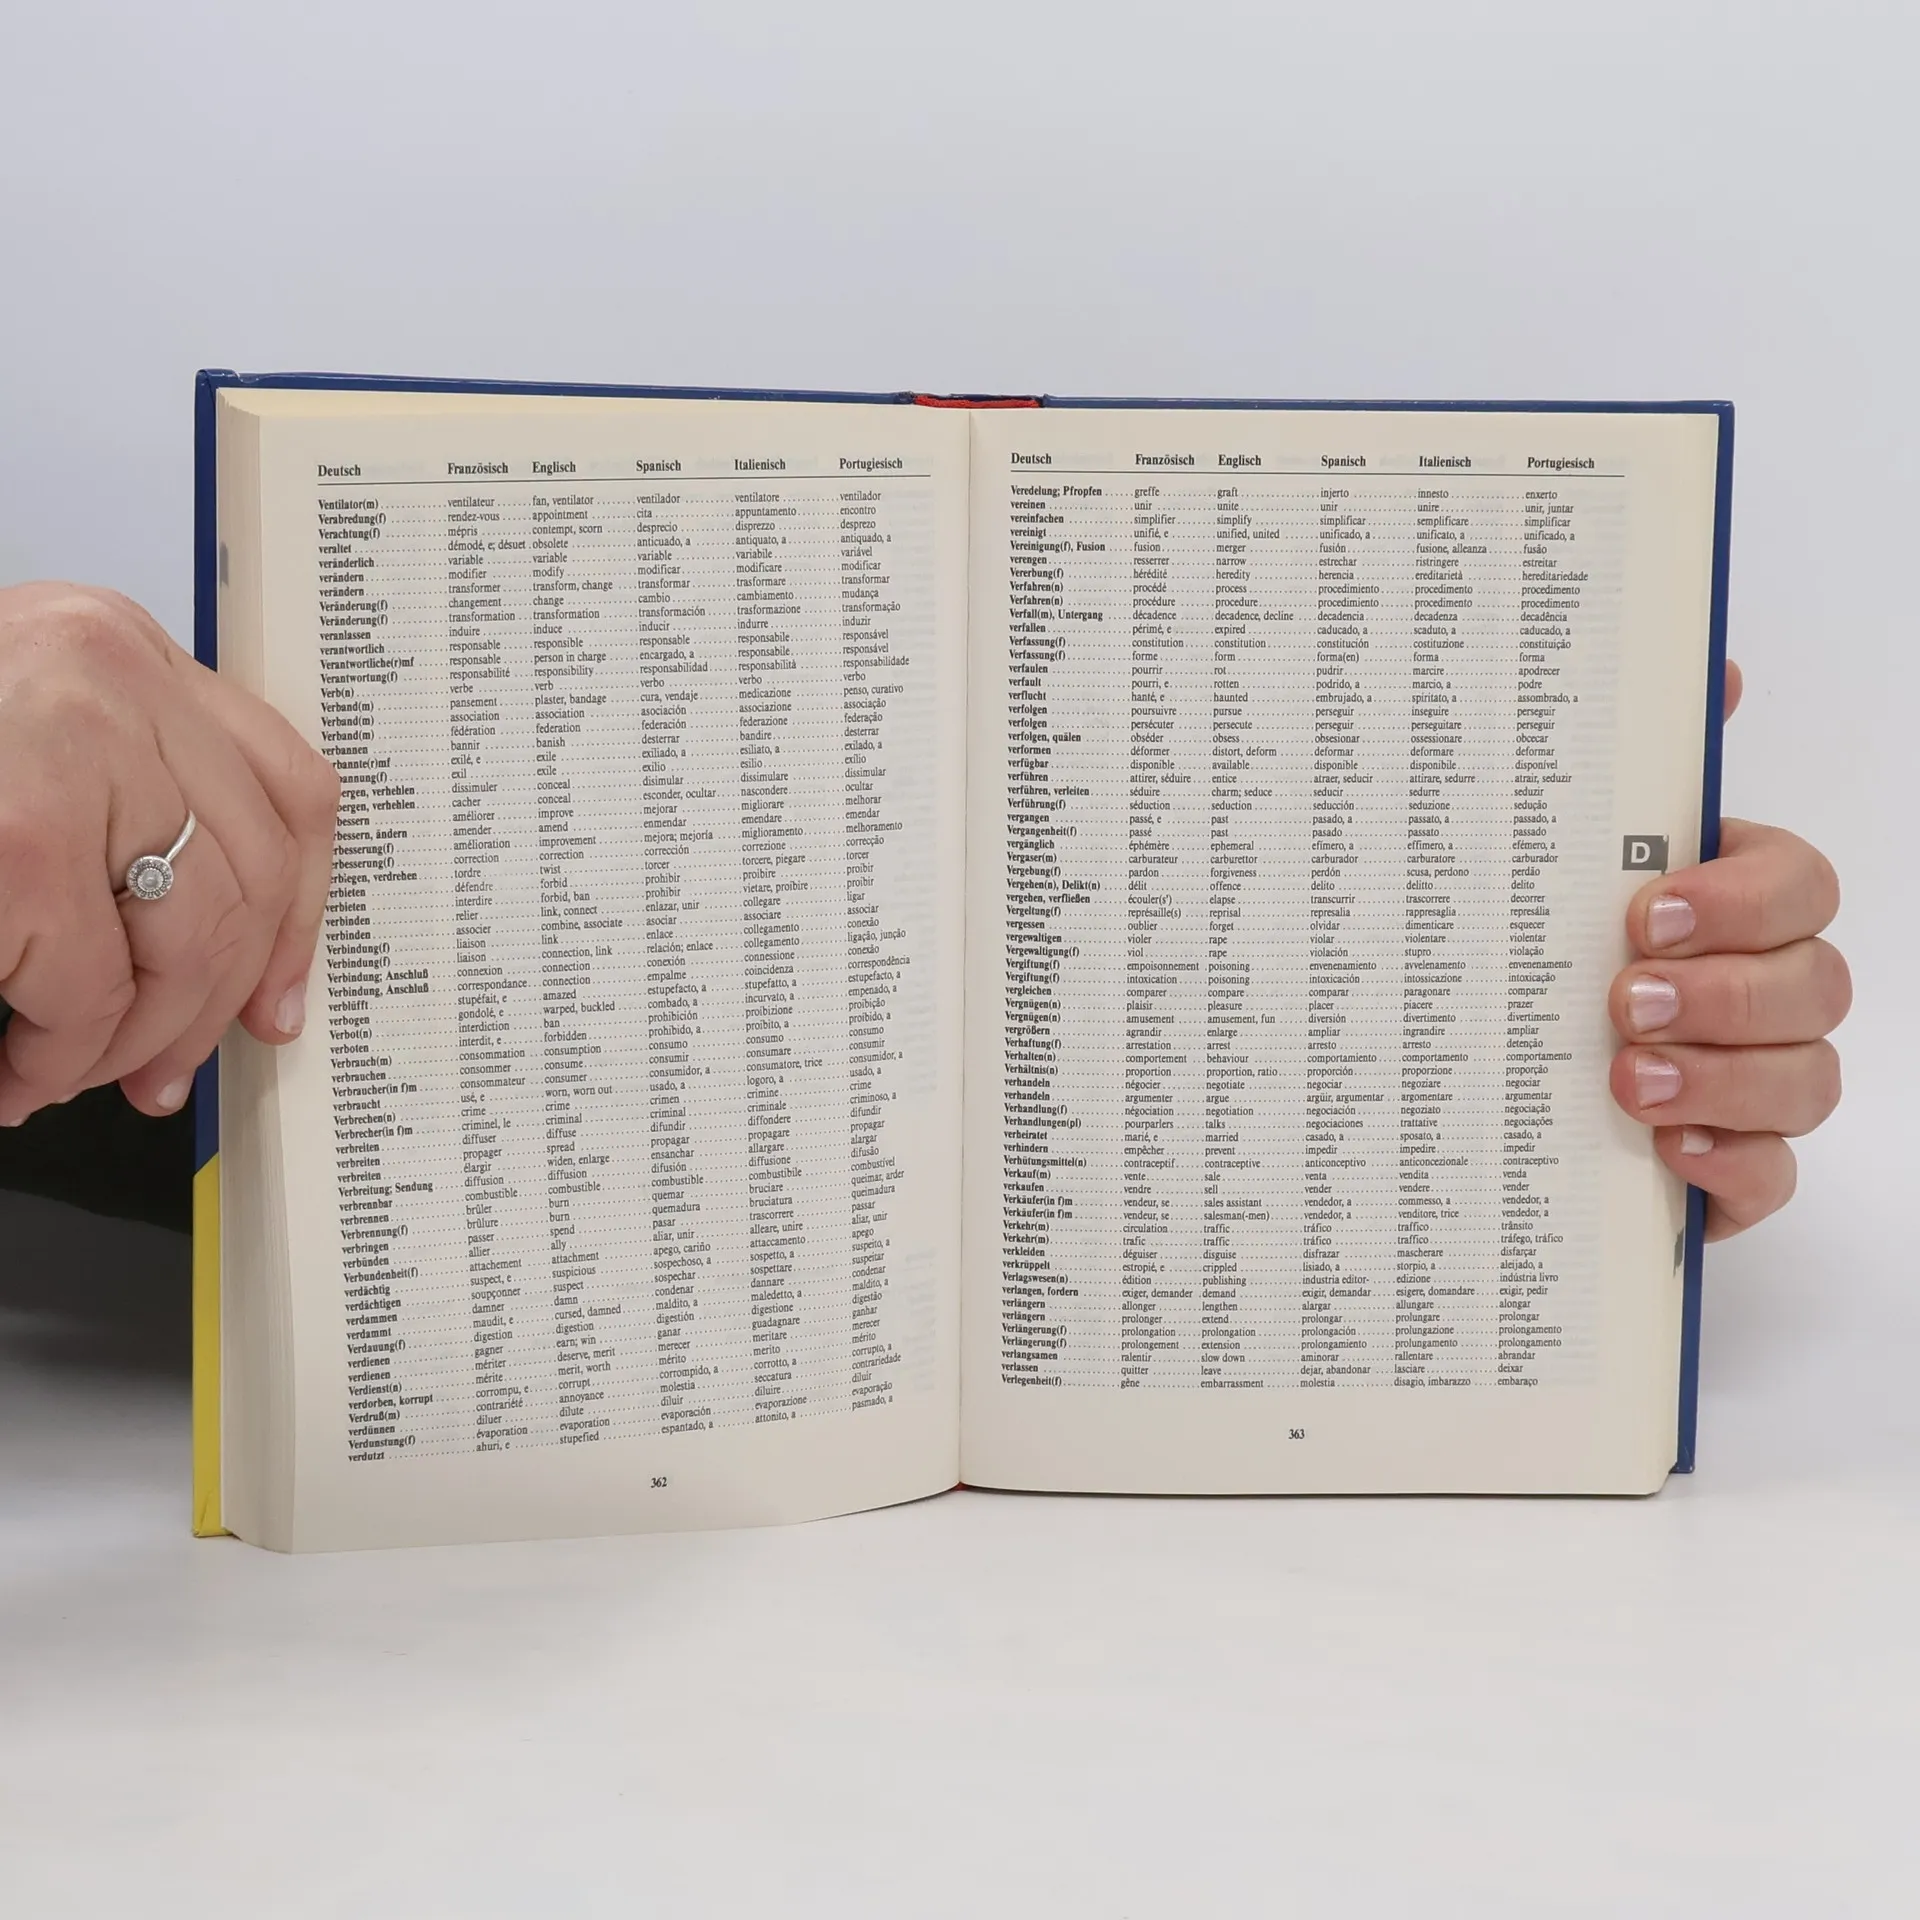 Deutsch Französisch Englisch Spanisch Italienisch Portugiesisch
Ventilator(m) ventilateur fan, ventilator ventilador ventilatore ventilador
Verabredung(f) rendez-vous appointment cita appuntamento encontro
Verachtung(f) mépris contempt, scorn desprecio disprezzo desprezo
veraltet démodé, e; désuet obsolete anticuado, a antiquato, a antiquado, a
veränderlich variable variable variable variabile variável
verändern modifier modify modificar modificare modificar
verändern transformer transform, change transformar trasformare transformar
Veränderung(f) changement change cambio cambiamento mudança
Veränderung(f) transformation transformation transformación trasformazione transformação
veranlassen induire induce inducir indurre induzir
verantwortlich responsable responsible responsable responsabile responsável
Verantwortliche(r)mf responsable person in charge encargado, a responsabile responsável
Verantwortung(f) responsabilité responsibility responsabilidad responsabilità responsabilidade
Verb(n) verbe verb verbo verbo verbo
Verband(m) pansement plaster, bandage cura, vendaje medicazione penso, curativo
Verband(m) association association asociación associazione associação
Verband(m) fédération federation federación federazione federação
verbannen bannir banish desterrar bandire desterrar
rbannte(r)mf exilé, e exile exiliado, a esiliato, a exilado, a
bannung(f) exil exile exilio esilio exílio
bergen, verhehlen dissimuler conceal disimular dissimulare dissimular
bergen, verhehlen cacher conceal esconder, ocultar nascondere ocultar
bessern améliorer improve mejorar migliorare melhorar
rbessern, ändern amender amend enmendar emendare emendar
rbesserung(f) amélioration improvement mejora; mejoría miglioramento melhoramento
rbesserung(f) correction correction corrección correzione correcção
erbiegen, verdrehen tordre twist torcer torcere, piegare torcer
erbieten défendre forbid prohibir proibire proibir
verbieten interdire forbid, ban prohibir vietare, proibire proibir
verbinden relier link, connect enlazar, unir collegare ligar
verbinden associer combine, associate asociar associare associar
Verbindung(f) liaison link enlace collegamento conexão
Verbindung(f) liaison connection, link relación; enlace collegamento ligação, junção
Verbindung; Anschluß connexion connection conexión connessione conexão
Verbindung, Anschluß correspondance connection empalme coincidenza correspondência
verblüfft stupéfait, e amazed estupefacto, a stupefatto, a estupefacto, a
verbogen gondolé, e warped, buckled combado, a incurvato, a empenado, a
Verbot(n) interdiction ban prohibición proibizione proibição
verboten interdit, e forbidden prohibido, a proibito, a proibido, a
Verbrauch(m) consommation consumption consumo consumo consumo
verbrauchen consommer consume consumir consumare consumir
Verbraucher(in f)m consommateur consumer consumidor, a consumatore, trice consumidor, a
verbraucht usé, e worn, worn out usado, a logoro, a usado, a
Verbrechen(n) crime crime crimen crimine crime
Verbrecher(in f)m criminel, le criminal criminal criminale criminoso, a
verbreiten diffuser diffuse difundir diffondere difundir
verbreiten propager spread propagar propagare propagar
verbreiten élargir widen, enlarge ensanchar allargare alargar
Verbreitung; Sendung diffusion diffusion difusión diffusione difusão
verbrennbar combustible combustible combustible combustibile combustível
verbrennen brûler burn quemar bruciare queimar, arder
Verbrennung(f) brûlure burn quemadura bruciatura queimadura
verbringen passer spend pasar trascorrere passar
verbünden allier ally aliar, unir alleare, unire aliar, unir
Verbundenheit(f) attachement attachment apego, cariño attaccamento apego
verdächtig suspect, e suspicious sospechoso, a sospetto, a suspeito, a
verdächtigen soupçonner suspect sospechar sospettare suspeitar
verdammen damner damn condenar dannare condenar
verdammt maudit, e cursed, damned maldito, a maledetto, a maldito, a
Verdauung(f) digestion digestion digestión digestione digestão
verdienen gagner earn; win ganar guadagnare ganhar
verdienen mériter deserve, merit merecer meritare merecer
Verdienst(n) mérite merit, worth mérito merito mérito
verdorben, korrupt corrompu, e corrupt corrompido, a corrotto, a corrupto, a
Verdruß(m) contrariété annoyance molestia seccatura contrariedade
verdünnen diluer dilute diluir diluire diluir
Verdunstung(f) évaporation evaporation evaporación evaporazione evaporação
verdutzt ahuri, e stupefied espantado, a attonito, a pasmado, a
362
Deutsch Französisch Englisch Spanisch Italienisch Portugiesisch
Veredelung; Pfropfen greffe graft injerto innesto enxerto
vereinen unir unite unir unire unir, juntar
vereinfachen simplifier simplify simplificar semplificare simplificar
vereinigt unifié, e unified, united unificado, a unificato, a unificado, a
Vereinigung(f), Fusion fusion merger fusión fusione, alleanza fusão
verengen resserrer narrow estrechar ristringere estreitar
Vererbung(f) hérédité heredity herencia ereditarietà hereditariedade
Verfahren(n) procédé process procedimiento procedimento procedimento
Verfahren(n) procédure procedure procedimiento procedimento procedimento
Verfall(m), Untergang décadence decadence, decline decadencia decadenza decadência
verfallen périmé, e expired caducado, a scaduto, a caducado, a
Verfassung(f) constitution constitution constitución costituzione constituição
Verfassung(f) forme form forma(en) forma forma
verfaulen pourrir rot pudrir marcire apodrecer
verfault pourri, e rotten podrido, a marcio, a podre
verflucht hanté, e haunted embrujado, a spiritato, a assombrado, a
verfolgen poursuivre pursue perseguir inseguire perseguir
verfolgen persécuter persecute perseguir perseguitare perseguir
verfolgen, quälen obséder obsess obsesionar ossessionare obcecar
verformen déformer distort, deform deformar deformare deformar
verfügbar disponible available disponible disponibile disponível
verführen attirer, séduire entice atraer, seducir attirare, sedurre atrair, seduzir
verführen, verleiten séduire charm; seduce seducir sedurre seduzir
Verführung(f) séduction seduction seducción seduzione sedução
vergangen passé, e past pasado, a passato, a passado, a
Vergangenheit(f) passé past pasado passato passado
vergänglich éphémère ephemeral efímero, a effimero, a efémero, a
Vergaser(m) carburateur carburettor carburador carburatore carburador
Vergebung(f) pardon forgiveness perdón scusa, perdono perdão
Vergehen(n), Delikt(n) délit offence delito delitto delito
vergehen, verfließen écouler(s') elapse transcurrir trascorrere decorrer
Vergeltung(f) représaille(s) reprisal represalia rappresaglia represália
vergessen oublier forget olvidar dimenticare esquecer
vergewaltigen violer rape violar violentare violentar
Vergewaltigung(f) viol rape violación stupro violação
Vergiftung(f) empoisonnement poisoning envenenamiento avvelenamento envenenamento
Vergiftung(f) intoxication poisoning intoxicación intossicazione intoxicação
vergleichen comparer compare comparar paragonare comparar
Vergnügen(n) plaisir pleasure placer piacere prazer
Vergnügen(n) amusement amusement, fun diversión divertimento divertimento
vergrößern agrandir enlarge ampliar ingrandire ampliar
Verhaftung(f) arrestation arrest arresto arresto detenção
Verhalten(n) comportement behaviour comportamiento comportamento comportamento
Verhältnis(n) proportion proportion, ratio proporción proporzione proporção
verhandeln négocier negotiate negociar negoziare negociar
verhandeln argumenter argue argüir, argumentar argomentare argumentar
Verhandlung(f) négociation negotiation negociación negoziato negociação
Verhandlungen(pl) pourparlers talks negociaciones trattative negociações
verheiratet marié, e married casado, a sposato, a casado, a
verhindern empêcher prevent impedir impedire impedir
Verhütungsmittel(n) contraceptif contraceptive anticonceptivo anticoncezionale contraceptivo
Verkauf(m) vente sale venta vendita venda
verkaufen vendre sell vender vendere vender
Verkäufer(in f)m vendeur, se sales assistant vendedor, a commesso, a vendedor, a
Verkäufer(in f)m vendeur, se salesman(-men) vendedor, a venditore, trice vendedor, a
Verkehr(m) circulation traffic tráfico traffico trânsito
Verkehr(m) trafic traffic tráfico traffico tráfego, tráfico
verkleiden déguiser disguise disfrazar mascherare disfarçar
verkrüppelt estropié, e crippled lisiado, a storpio, a aleijado, a
Verlagswesen(n) édition publishing industria editor- edizione indústria livro
verlangen, fordern exiger, demander demand exigir, demandar esigere, domandare exigir, pedir
verlängern allonger lengthen alargar allungare alongar
verlängern prolonger extend prolongar prolungare prolongar
Verlängerung(f) prolongation prolongation prolongación prolungazione prolongamento
Verlängerung(f) prolongement extension prolongamiento prolungamento prolongamento
verlangsamen ralentir slow down aminorar rallentare abrandar
verlassen quitter leave dejar, abandonar lasciare deixar
Verlegenheit(f) gêne embarrassment molestia disagio, imbarazzo embaraço
D
363